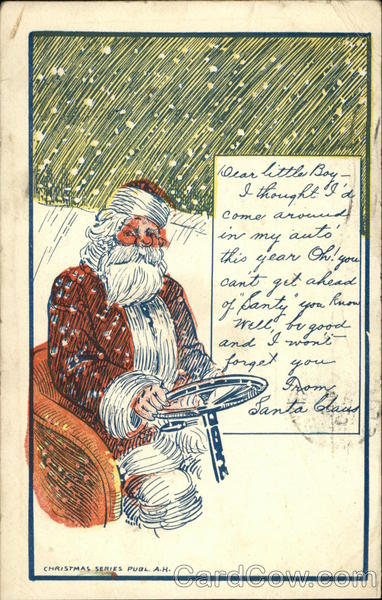 Dear little Boy—
I thought I'd
come around
in my auto
this year Oh! you
can't get ahead
of "Santy" you know
Well, be good
and I won't
forget you
From
Santa Claus
CHRISTMAS SERIES PUBL. A.H.
CardCow.com